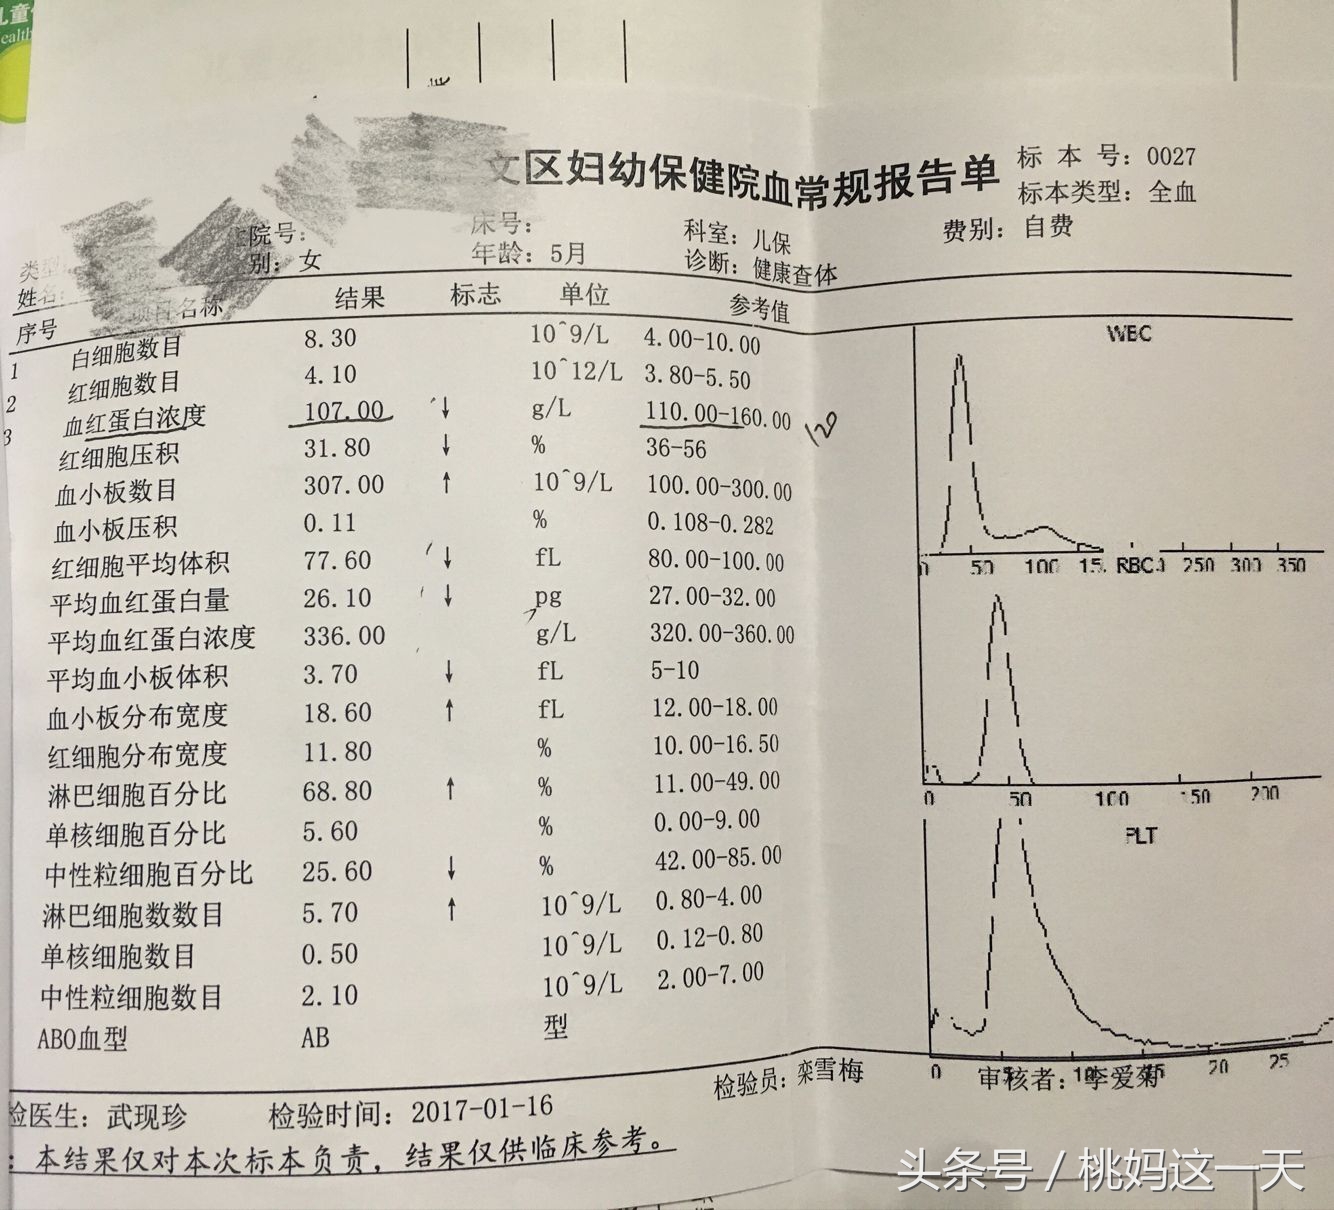 儿童
ealth
文区妇幼保健院血常规报告单
标 本 号: 0027
标本类型: 全血
费别: 自费
院号:
床号:
科室: 儿保
类型
别: 女
年龄: 5月
诊断: 健康查体
姓名:
序号 项目名称 结果 标志 单位 参考值
1 白细胞数目 8.30 10^9/L 4.00-10.00
2 红细胞数目 4.10 10^12/L 3.80-5.50
3 血红蛋白浓度 107.00 ↓ g/L 110.00-160.00 120
红细胞压积 31.80 ↓ % 36-56
血小板数目 307.00 ↑ 10^9/L 100.00-300.00
血小板压积 0.11 % 0.108-0.282
红细胞平均体积 77.60 ↓ fL 80.00-100.00
平均血红蛋白量 26.10 ↓ pg 27.00-32.00
平均血红蛋白浓度 336.00 g/L 320.00-360.00
平均血小板体积 3.70 ↓ fL 5-10
血小板分布宽度 18.60 ↑ fL 12.00-18.00
红细胞分布宽度 11.80 % 10.00-16.50
淋巴细胞百分比 68.80 ↑ % 11.00-49.00
单核细胞百分比 5.60 % 0.00-9.00
中性粒细胞百分比 25.60 ↓ % 42.00-85.00
淋巴细胞数数目 5.70 ↑ 10^9/L 0.80-4.00
单核细胞数目 0.50 10^9/L 0.12-0.80
中性粒细胞数目 2.10 10^9/L 2.00-7.00
ABO血型 AB 型
WBC
0 50 100 15 250 300 350
RBC
0 50 100 150 200
PLT
0 5 10 15 20 25
检医生: 武现珍 检验时间: 2017-01-16 检验员: 栾雪梅 审核者: 李爱菊
: 本结果仅对本次标本负责, 结果仅供临床参考。
头条号 / 桃妈这一天